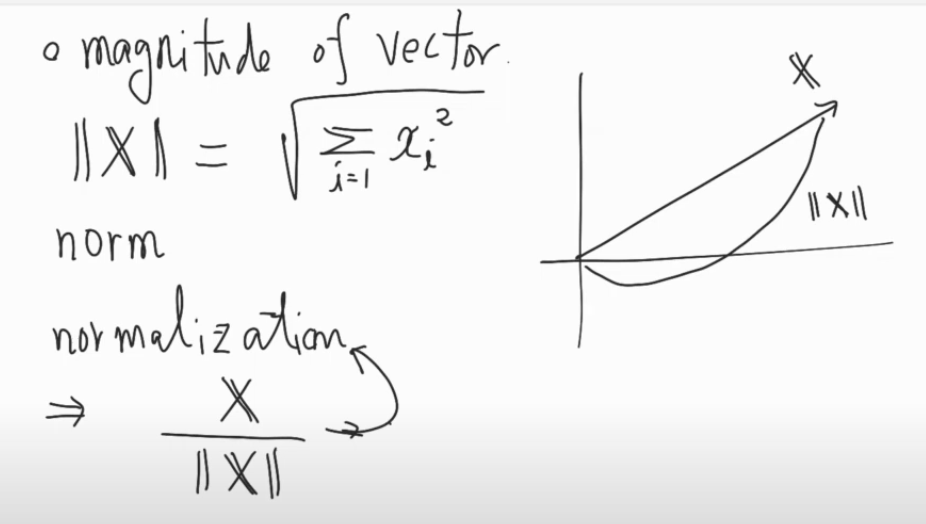 o magnitude of vector
‖𝕏‖ = √ Σ i=1 xᵢ²
norm
normalization
⇒ 𝕏 / ‖𝕏‖ →
𝕏
‖𝕏‖